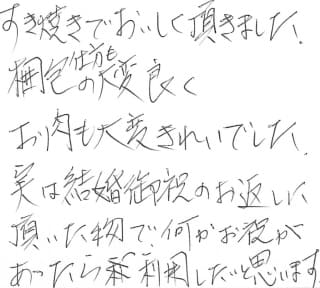 すき焼きでおいしく頂きました。
梱包の仕方も大変良く
お肉も大変きれいでした。
実は結婚御祝のお返しに
頂いた物で、何かお祝が
あったら利用したいと思います